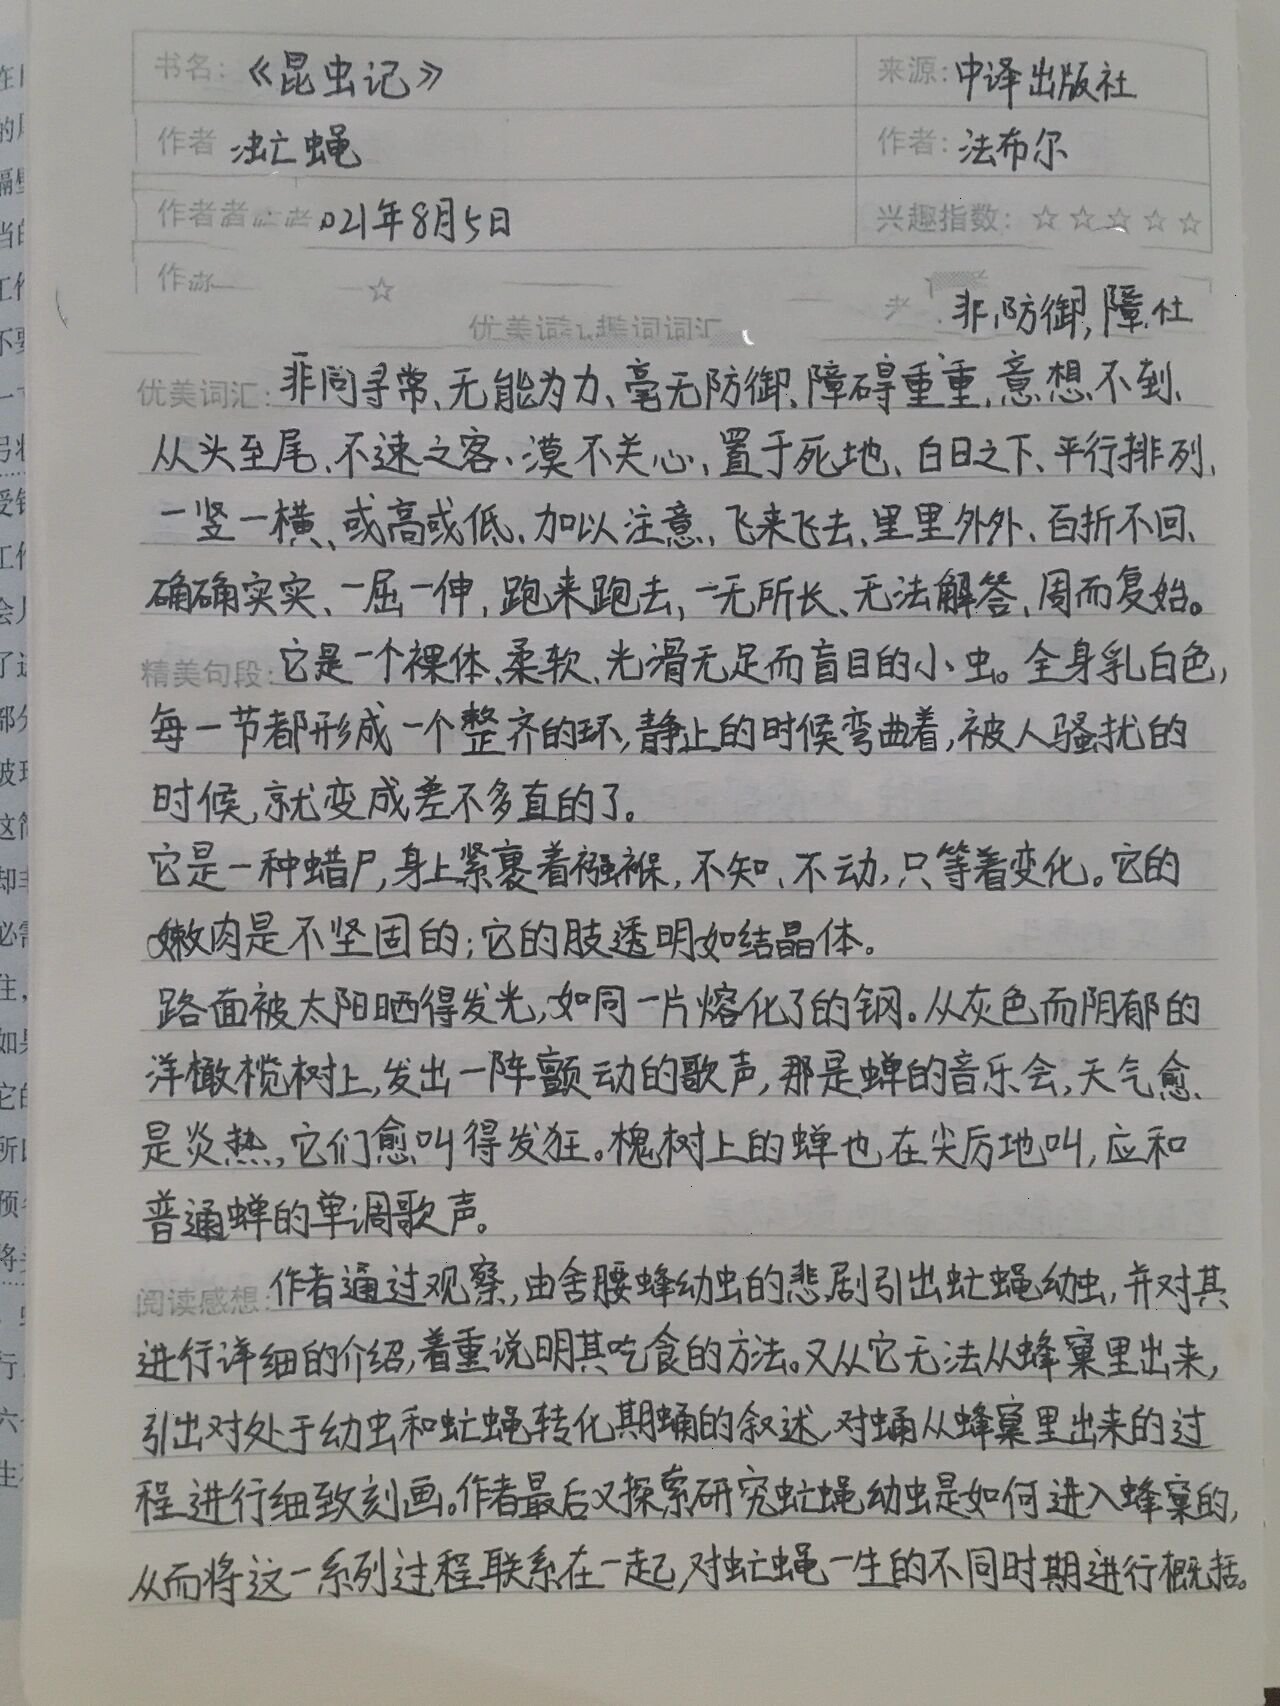 书名: 《昆虫记》 来源: 中译出版社
作者 虻蝇 作者: 法布尔
作者者 021年8月5日 兴趣指数: ☆☆☆☆☆
☆
非,防御,障
优美词 词词汇
优美词汇: 非同寻常、无能为力、毫无防御、障碍重重、意想不到、
从头至尾、不速之客、漠不关心、置于死地、白日之下、平行排列、
一竖一横、或高或低、加以注意、飞来飞去、里里外外、百折不回、
确确实实、一屈一伸、跑来跑去、一无所长、无法解答、周而复始。
精美句段: 它是一个裸体、柔软、光滑无足而盲目的小虫。全身乳白色,
每一节都形成一个整齐的环,静止的时候弯曲着,被人骚扰的
时候,就变成差不多直的了。
它是一种蜡尸,身上紧裹着襁褓,不知、不动,只等着变化。它的
嫩肉是不坚固的;它的肢透明如结晶体。
路面被太阳晒得发光,如同一片熔化了的钢。从灰色而阴郁的
洋橄榄树上,发出一阵颤动的歌声,那是蝉的音乐会,天气愈
是炎热,它们愈叫得发狂。槐树上的蝉也在尖厉地叫,应和
普通蝉的单调歌声。
阅读感想: 作者通过观察,由舍腰蜂幼虫的悲剧引出虻蝇幼虫,并对其
进行详细的介绍,着重说明其吃食的方法。又从它无法从蜂窠里出来,
引出对处于幼虫和虻蝇转化期蛹的叙述,对蛹从蜂窠里出来的过
程进行细致刻画。作者最后又探索研究虻蝇幼虫是如何进入蜂窠的,
从而将这一系列过程联系在一起,对虻蝇一生的不同时期进行概括。